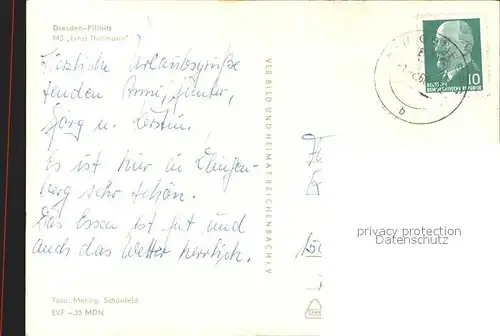 Dresden-Pillnitz
MS „Ernst Thälmann"
Herzliche Urlaubsgrüße
senden Anni, Günter,
Jörg u. Kerstin.
Es ist hier in Klingen-
berg sehr schön.
Das Essen ist gut und
auch das Wetter herrlich.
Foto: Meßlig, Schönfeld
EVP –,25 MDN
VEB BILD UND HEIMAT REICHENBACH I. V.
10
DEUTSCHE
DEMOKRATISCHE REPUBLIK
b
privacy protection
Datenschutz